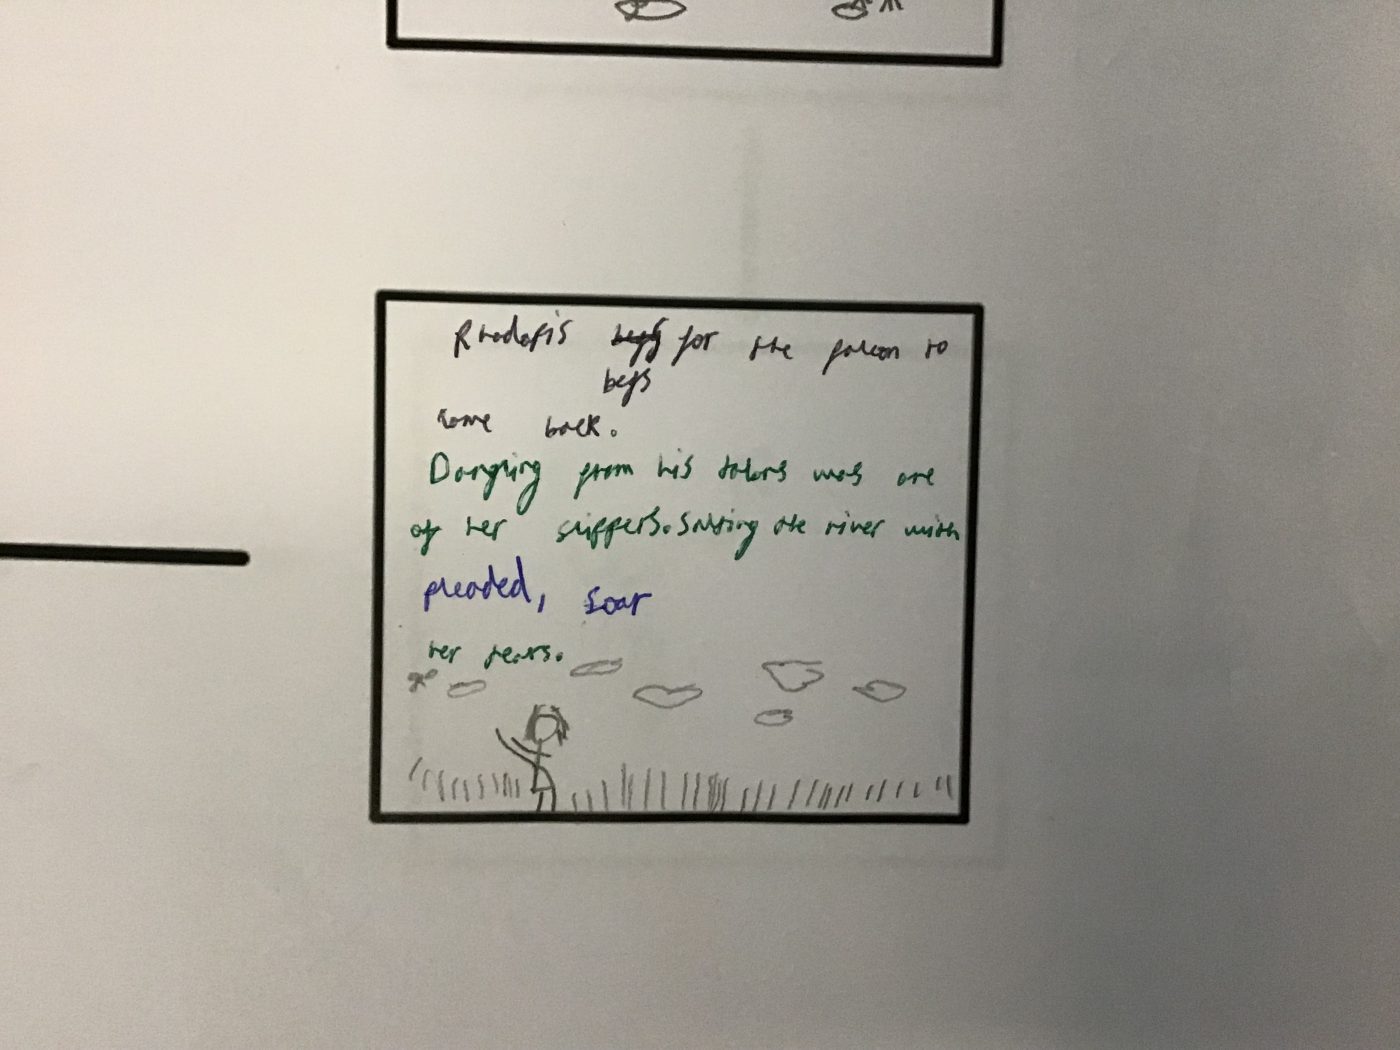 Rhodopis begs for the falcon to
begs
come back.
Dangling from his talons was one
of her slippers. Salting the river with
pleaded, soar
her tears.